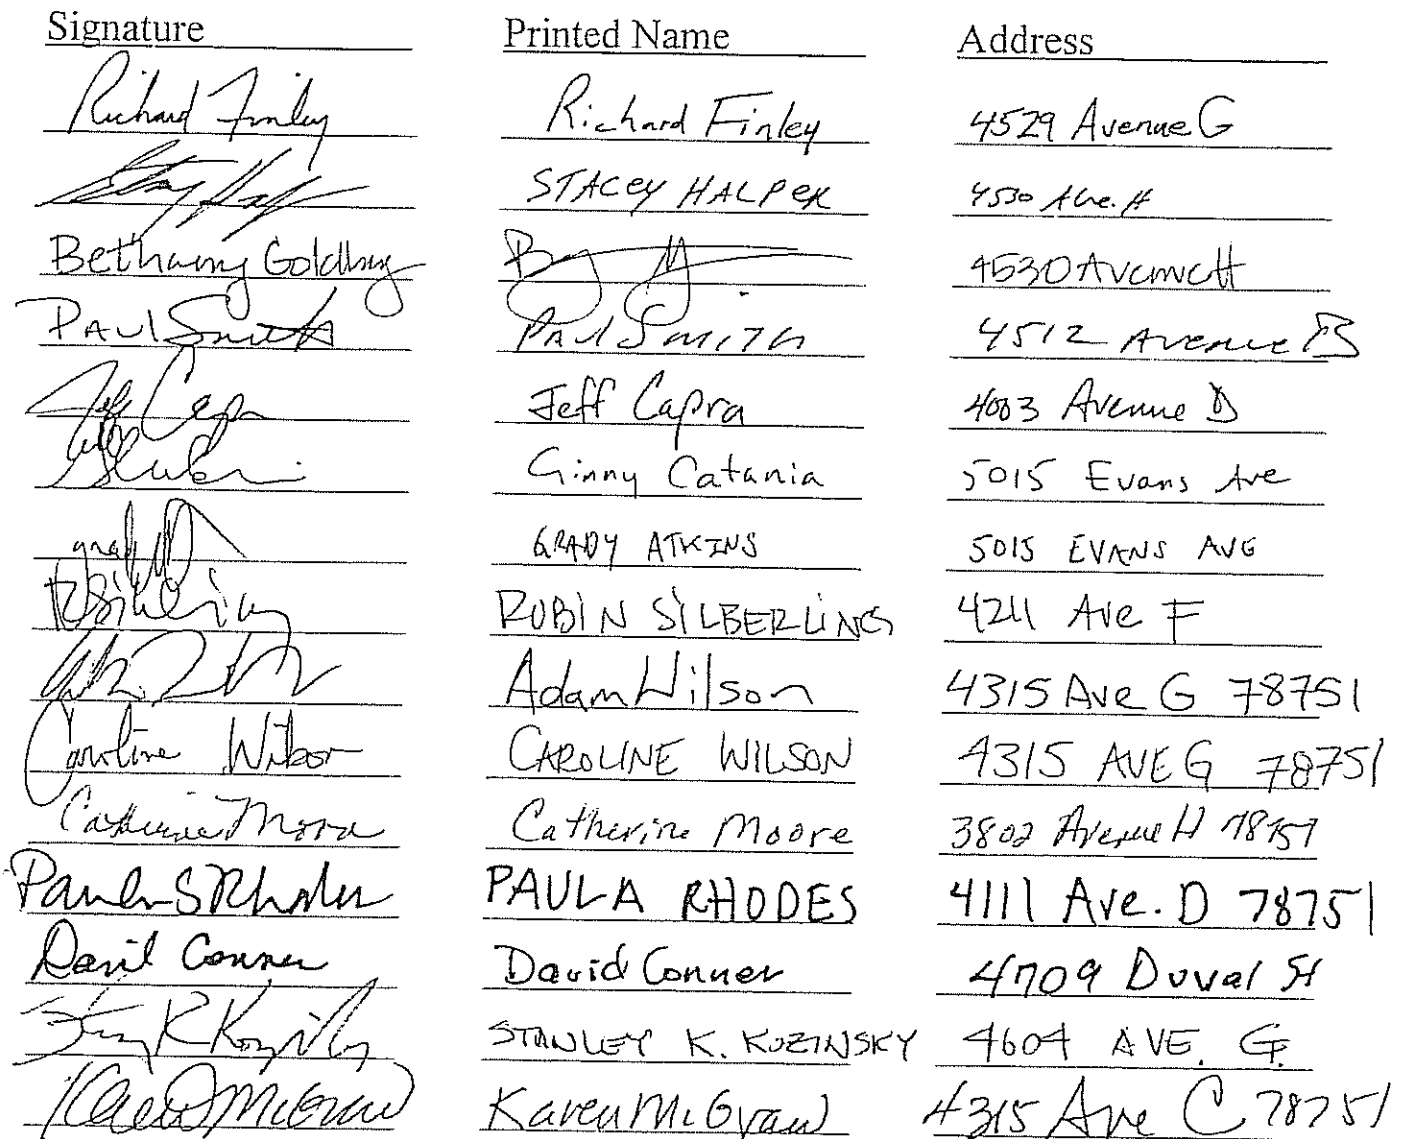 Signature Printed Name Address
Richard Finley Richard Finley 4529 Avenue G
STACEY HALPER 4530 Ave. H
Bethany Goldberg 4530 Avenue H
PAUL Smith PAUL SMITH 4512 AVENUE B
Jeff Capra Jeff Capra 4003 Avenue D
Ginny Catania 5015 Evans Ave
GRADY ATKINS 5015 EVANS AVE
ROBIN SILBERLING 4211 Ave F
Adam Wilson 4315 Ave G 78751
Caroline Wilson CAROLINE WILSON 4315 AVE G 78751
Catherine Moore Catherine Moore 3802 Avenue H 78751
Paula S Rhodes PAULA RHODES 4111 Ave. D 78751
David Conner David Conner 4709 Duval St
STANLEY K. KOZINSKY 4604 AVE. G.
Karen McGraw Karen McGraw 4315 Ave C 78751